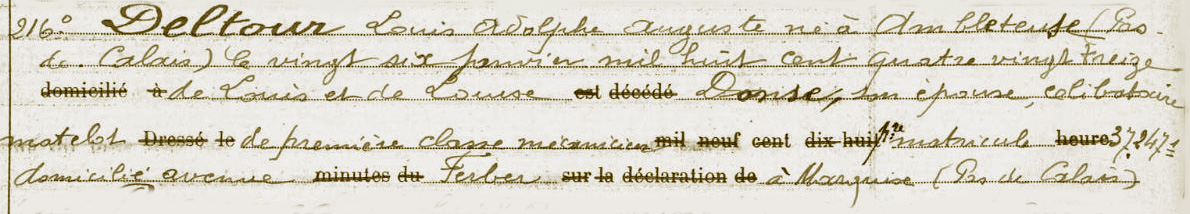 216° Deltour Louis Adolphe Auguste né à Ambleteuse (Pas
de Calais) le vingt six janvier mil huit cent quatre vingt treize
domicilié à de Louis et de Louise est décédé Danse, son épouse, célibataire
matelot Dressé le de première classe mécanicien mil neuf cent dix-huit matricule heure 37.247
domicilié avenue minutes du Ferber sur la déclaration de à Marquise (Pas de Calais)